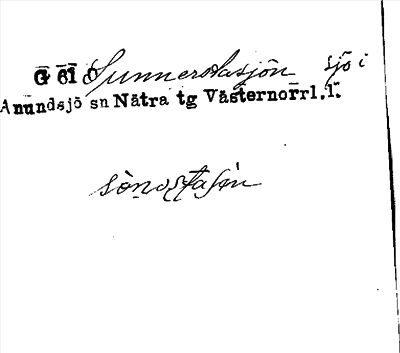 G 61 d Sunnerstasjön sjö i
Anundsjö sn Nätra tg Västernorrl.l.